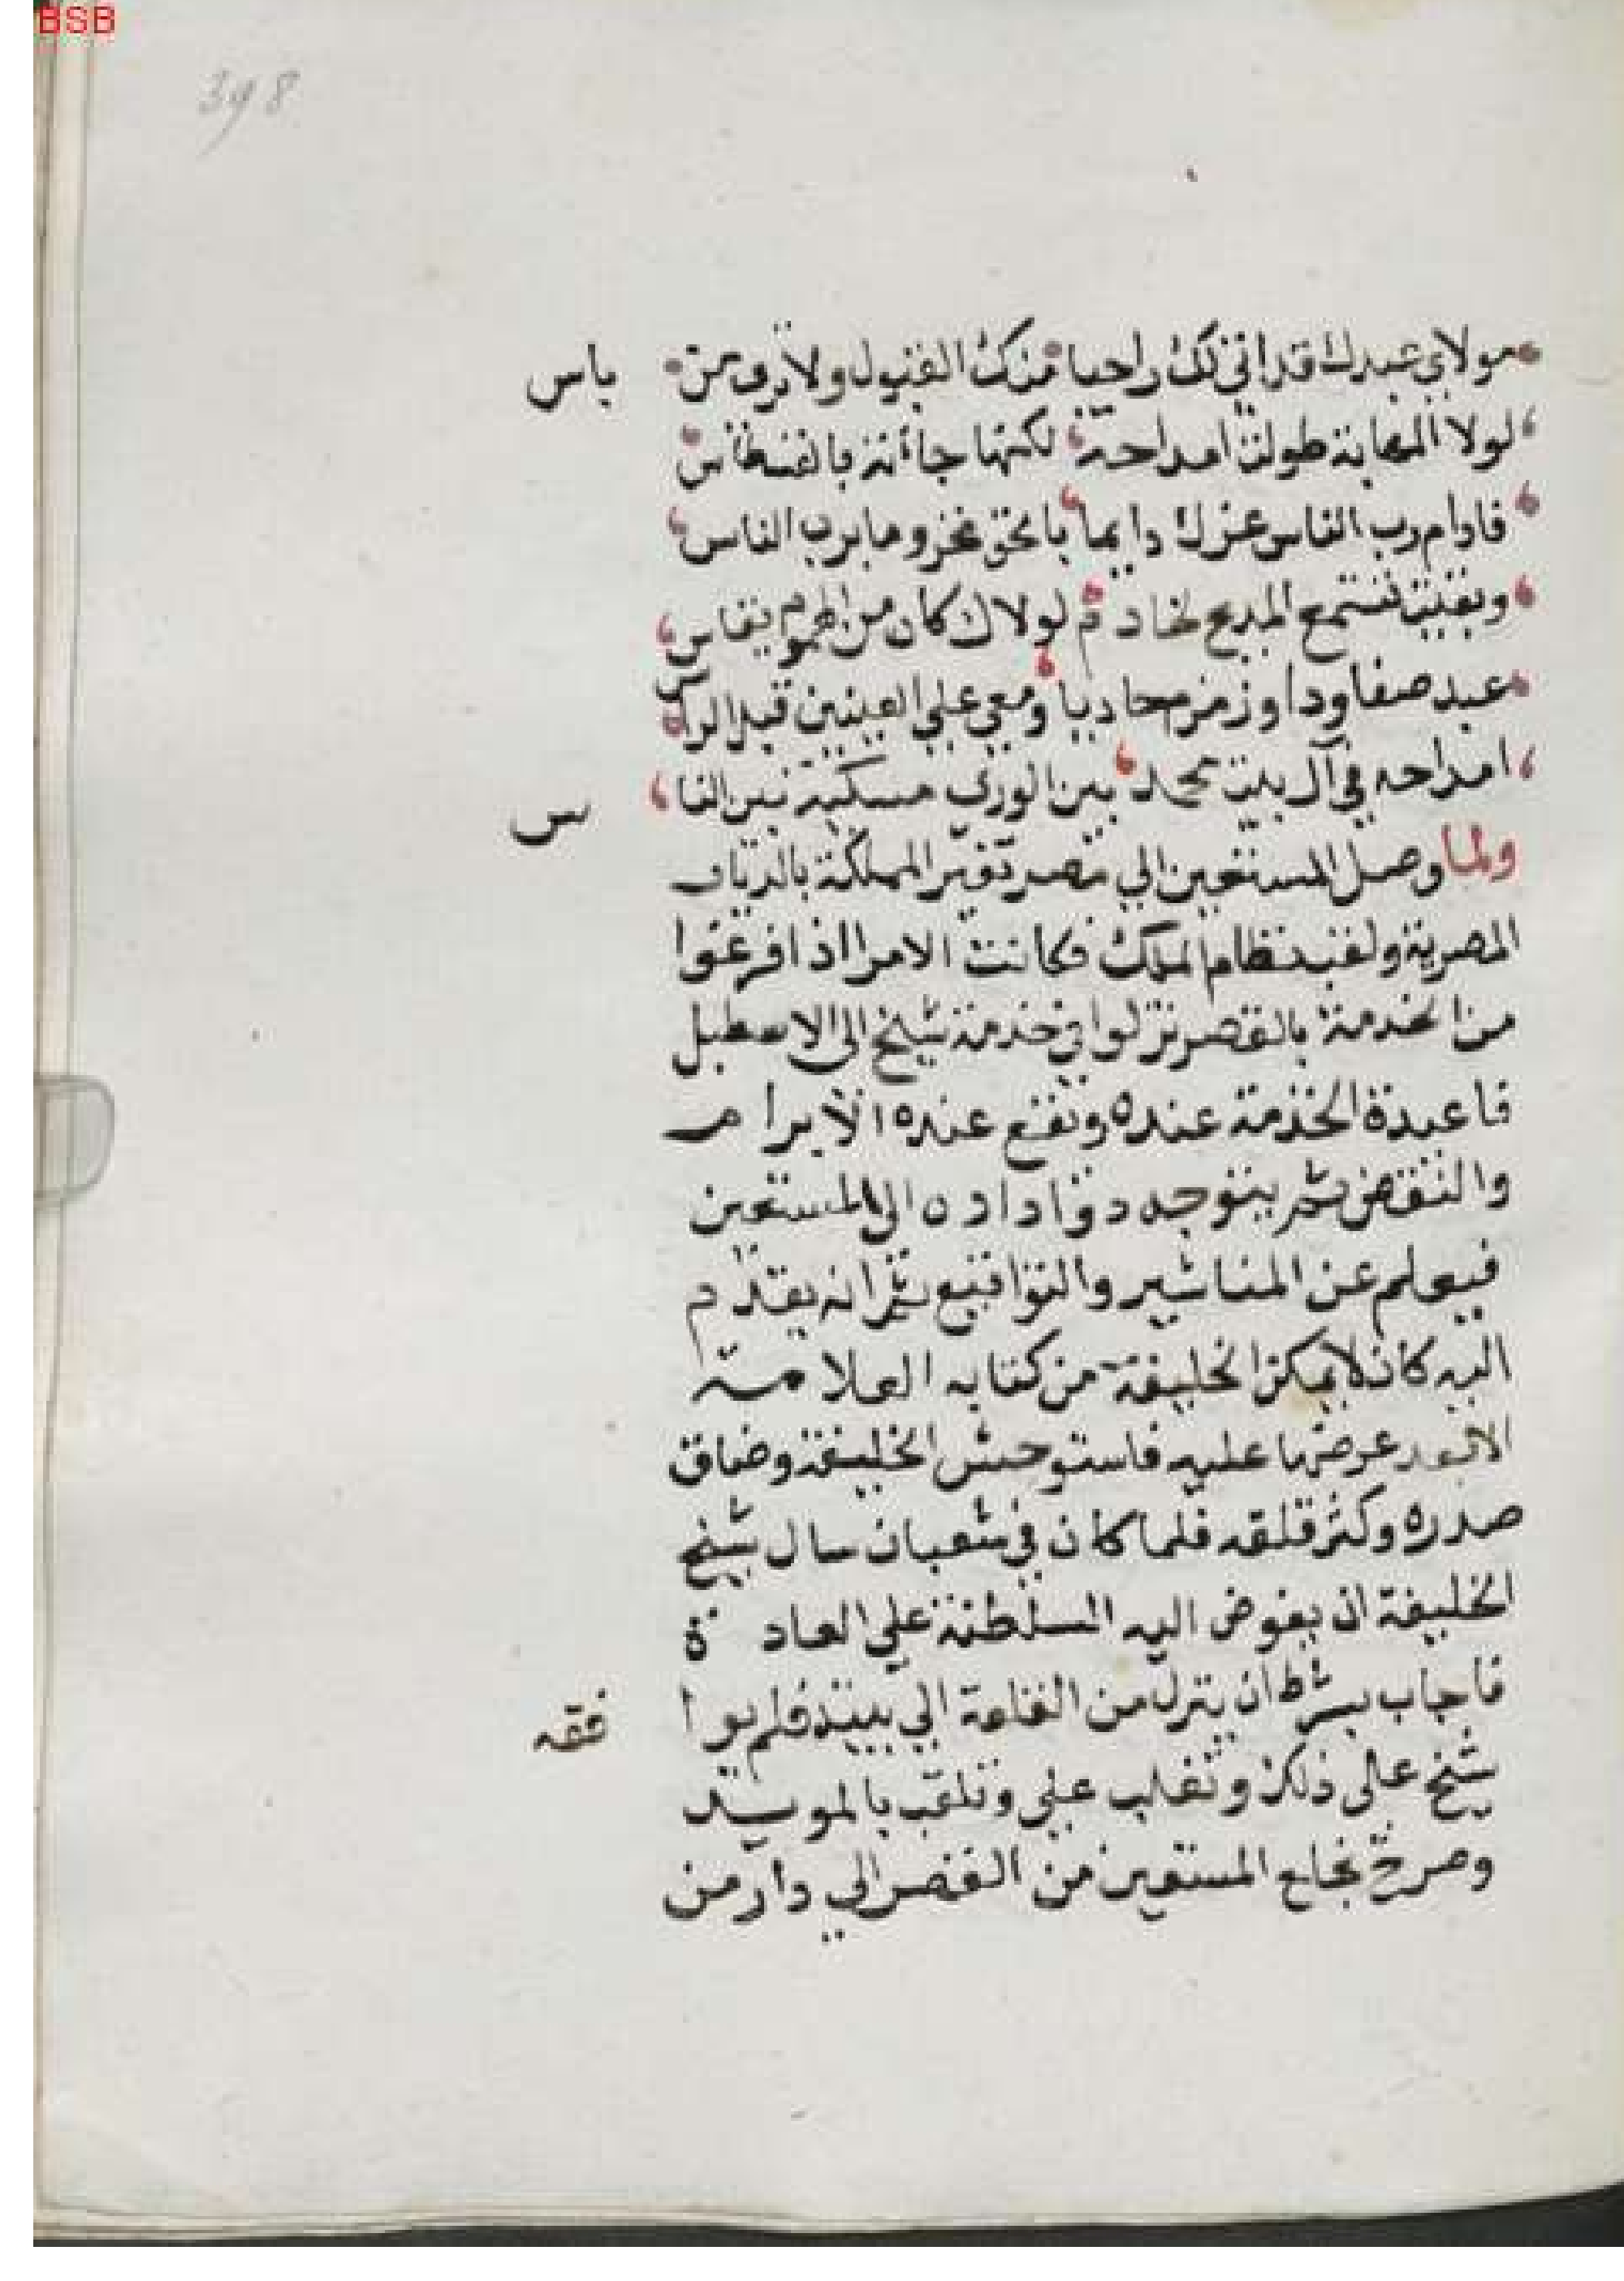 BSB
398
مولاي عبدك قد اتي لك راجيا منك القبول ولا يري من باس
لولا المهابة طولت امداحه لكنها جائته بالقسطاس
فادام رب الناس عزك دايما بالحق محروما برب الناس
وبقيت تستمع المديح لخادم لولاك كان من الهموم يقاس
عبد صفا ودا وزمزم حاديا وسعي علي العينين قبل الراس
امداحه في آل بيت محمد بين الوري مسكية بين النا
س
ولما وصل المستعين الي مصر تقرر المملكة بالديار
المصرية ولقب نظام الملك فكانت الامرا اذا فرغوا
من الخدمة بالقصر نزلوا في خدمة شيخ الى الاسطبل
فاعيدة الخدمة عنده ويقع عنده الابرام
والنقض ثم يتوجه دواداره الي المستعين
فيعلم عن المناشير والتواقيع ثم انه يقدم
اليه كان لا يمكن الخليفة من كتابه العلامة
الا بعد عرضها عليه فاستوحش الخليفة وضاق
صدره وكثر قلقه فلما كان في شعبان سال شيخ
الخليفة ان يفوض اليه السلطنة علي العادة
فاجاب بشرط ان ينزل من القلعة الي بيته فلم يوا
فقه
شيخ على ذلك وتغلب علي وتلقب بالمويد
وصرح بخلع المستعين من القصر الي دار من